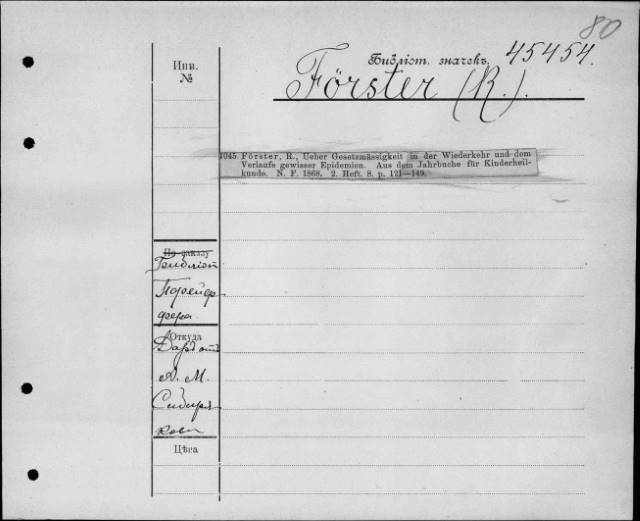 80
Библіот. значекъ 45454.
Инв.
№
Förster (R.).
1045 Förster, R., Ueber Gesetzmässigkeit in der Wiederkehr und dem
Verlaufe gewisser Epidemien. Aus dem Jahrbuche für Kinderheil-
kunde. N. F. 1868. 2. Heft. 8. p. 121—149.
По заказу
Библіот
Порейер
фера
Откуда
Даръ отъ
А. М.
Сибиря
кова
Цѣна